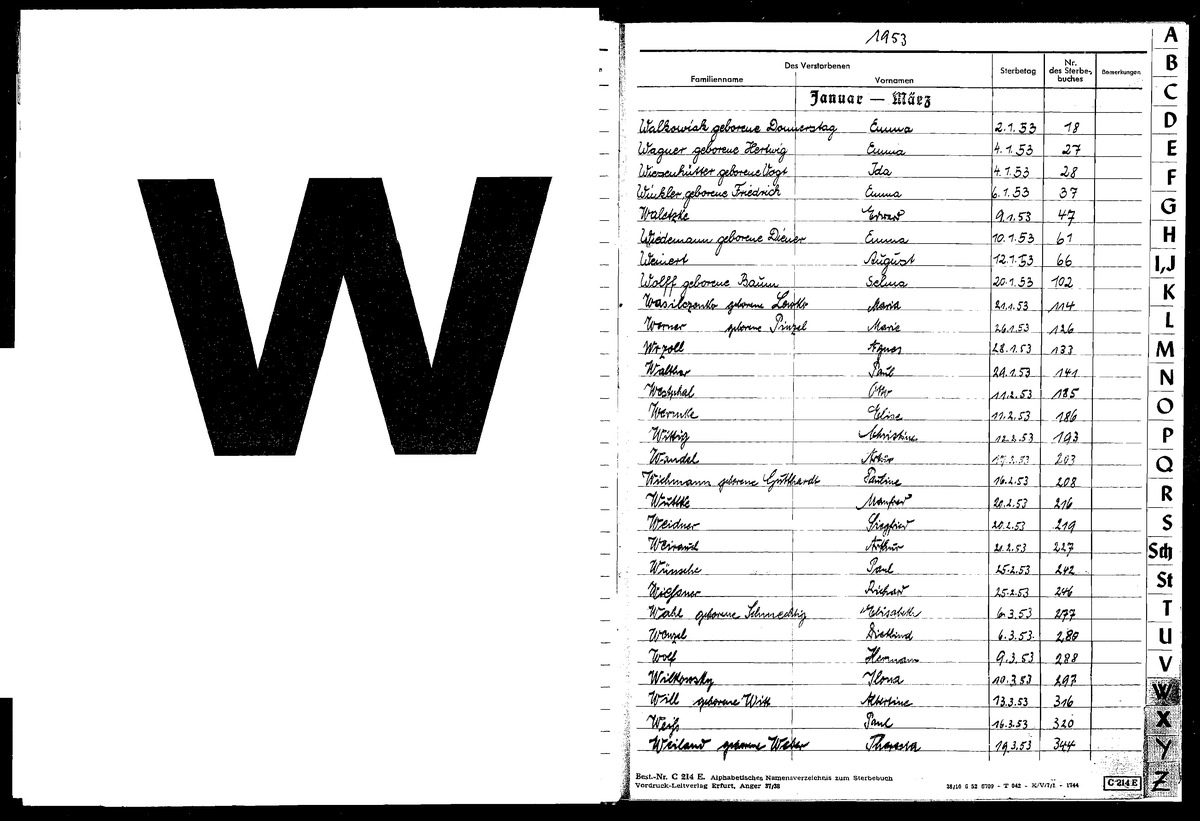 W
1953
Des Verstorbenen
Familienname Vornamen Sterbetag Nr. des Sterbebuches Bemerkungen
Januar — März
Walkowiak geborene Donnerstag Emma 2.1.53 18
Wagner geborene Hertwig Emma 4.1.53 27
Wiesenhütter geborene Vogt Ida 4.1.53 28
Winkler geborene Friedrich Emma 6.1.53 37
Waletzke 9.1.53 47
Wiedemann geborene Diener Emma 10.1.53 61
Weinert August 12.1.53 66
Wolff geborene Baum Selma 20.1.53 102
Wasilczenko geborene Maria 21.1.53 114
Werner geborene Pinzel Marie 26.1.53 126
Wrzoll Agnes 28.1.53 133
Walther Paul 29.1.53 141
Westphal Otto 11.2.53 185
Wernike Elise 11.2.53 186
Wittig Christine 12.2.53 193
Wandel Artur 203
Wichmann geborene Gutthardt Pauline 16.2.53 208
Wuttke Manfred 20.2.53 216
Weidner Siegfried 20.2.53 219
Weirauch Arthur 21.2.53 227
Wünsche Paul 25.2.53 242
Wiessner Richard 25.2.53 246
Wahl geborene Schmechtig Elisabeth 6.3.53 277
Wenzel Dietlind 6.3.53 280
Wolf Hermann 9.3.53 288
Witkowsky Ilona 10.3.53 297
Will geborene Witt Albertine 13.3.53 316
Weiß Paul 16.3.53 320
Weiland geborene Weber Theresia 19.3.53 344
Best.-Nr. C 214 E. Alphabetisches Namensverzeichnis zum Sterbebuch
Vordruck-Leitverlag Erfurt, Anger 37/38
38/10 G 52 6709 - T 042 - K/V/7/1 - 1744
C 214 E
A
B
C
D
E
F
G
H
I,J
K
L
M
N
O
P
Q
R
S
Sch
St
T
U
V
W
X
Y
Z